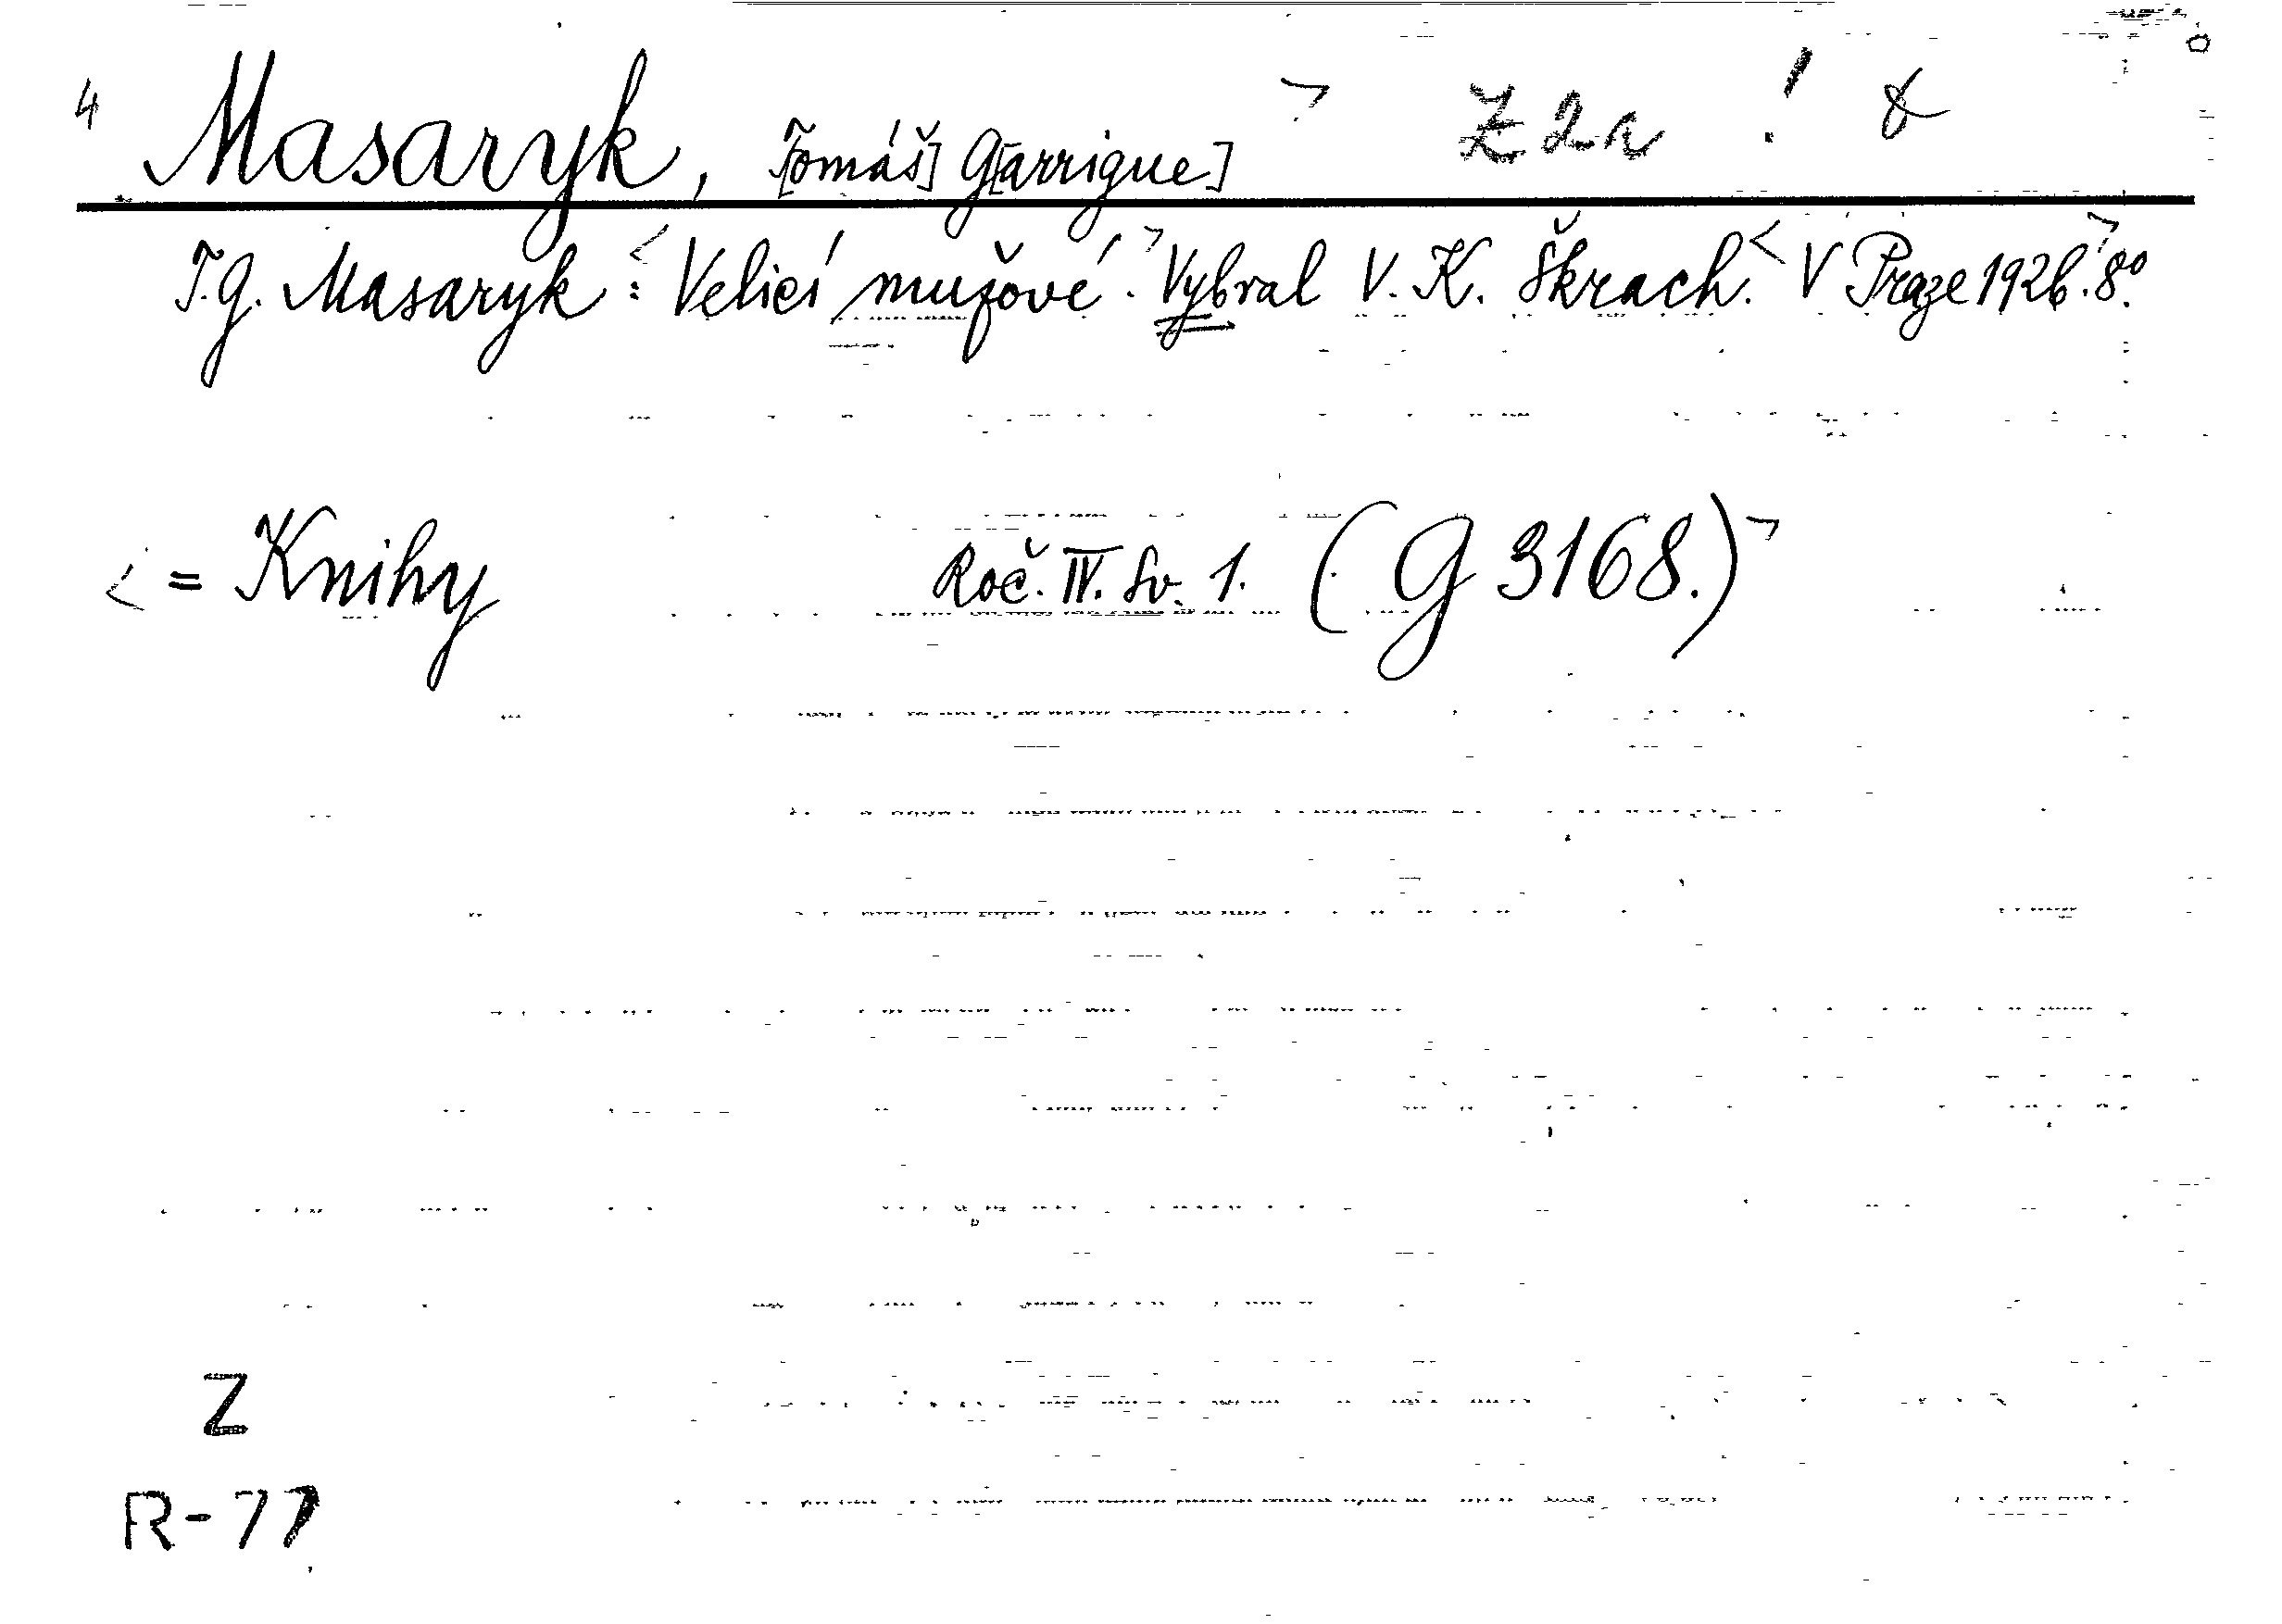 4 Masaryk, T[omáš] G[arrigue] Z 2a !
T. G. Masaryk: Velicí mužové. Vybral V. K. Škrach. V Praze 1926. 8°.
= Knihy Roč. IV. Sv. 1. (G 3168.)
Z
R-77